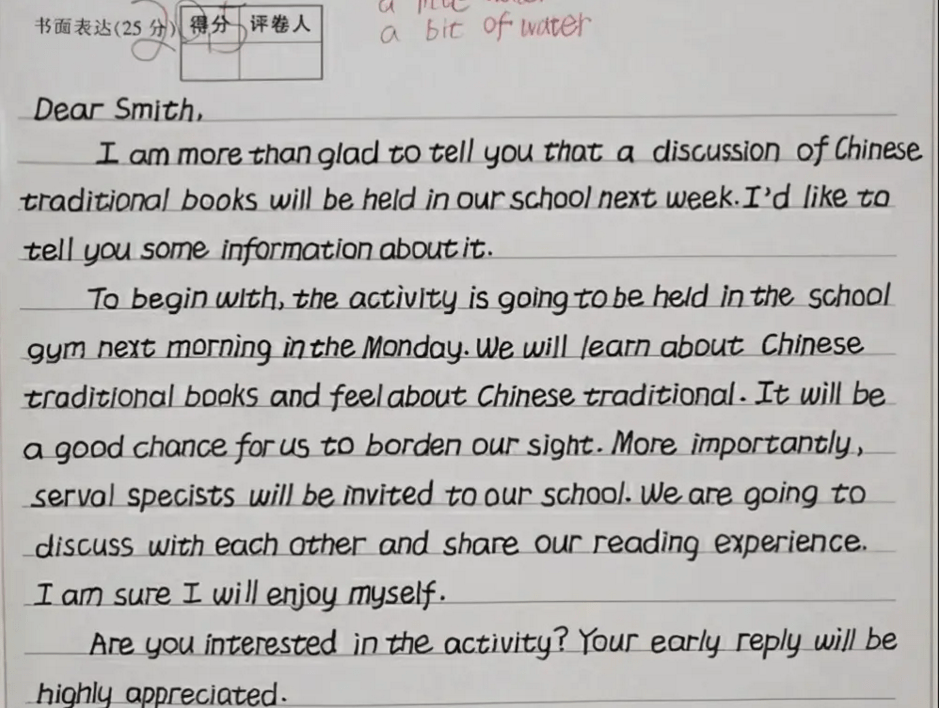 a
书面表达(25分) 得分 评卷人
a bit of water
Dear Smith,
I am more than glad to tell you that a discussion of Chinese
traditional books will be held in our school next week. I'd like to
tell you some information about it.
To begin with, the activity is going to be held in the school
gym next morning in the Monday. We will learn about Chinese
traditional books and feel about Chinese traditional. It will be
a good chance for us to borden our sight. More importantly,
serval specists will be invited to our school. We are going to
discuss with each other and share our reading experience.
I am sure I will enjoy myself.
Are you interested in the activity? Your early reply will be
highly appreciated.